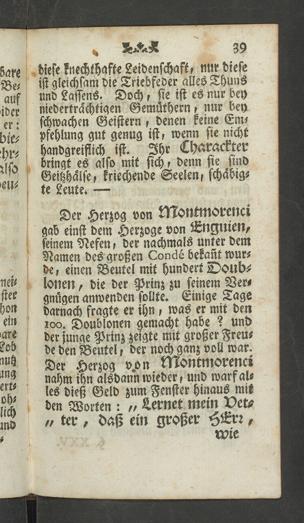 39
diese knechthafte Leidenschaft, nur diese
ist gleichsam die Triebfeder alles Thuns
und Lassens. Doch, sie ist es nur bey
niederträchtigen Gemüthern, nur bey
schwachen Geistern, denen keine Em-
pfehlung gut genug ist, wenn sie nicht
handgreiflich ist. Ihr Charackter
bringt es also mit sich, denn sie sind
Geitzhälse, kriechende Seelen, schäbig-
te Leute. —
Der Herzog von Montmorenci
gab einst dem Herzoge von Enguien,
seinem Nefen, der nachmals unter dem
Namen des großen Condé bekañt wur-
de, einen Beutel mit hundert Doub-
lonen, die der Prinz zu seinem Ver-
gnügen anwenden sollte. Einige Tage
darnach fragte er ihn, was er mit den
100. Doublonen gemacht habe? und
der junge Prinz zeigte mit großer Freu-
de den Beutel, der noch ganz voll war.
Der Herzog von Montmorenci
nahm ihn alsdann wieder, und warf al-
les dieß Geld zum Fenster hinaus mit
den Worten: „Lernet mein Vet-
„ter, daß ein großer HErr,
wie